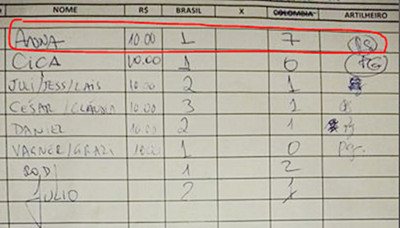 NOME R$ BRASIL X COLOMBIA ARTILHEIRO
10.00 1 7
CICA 10.00 1
JULI/JESS/LAIS 10.00 2 1
CESAR/CLAUDIA 10.00 3 1
DANIEL 10.00 2 1
VAGNER/GRAZI 10.00 1 0
1 2
JULIO 2